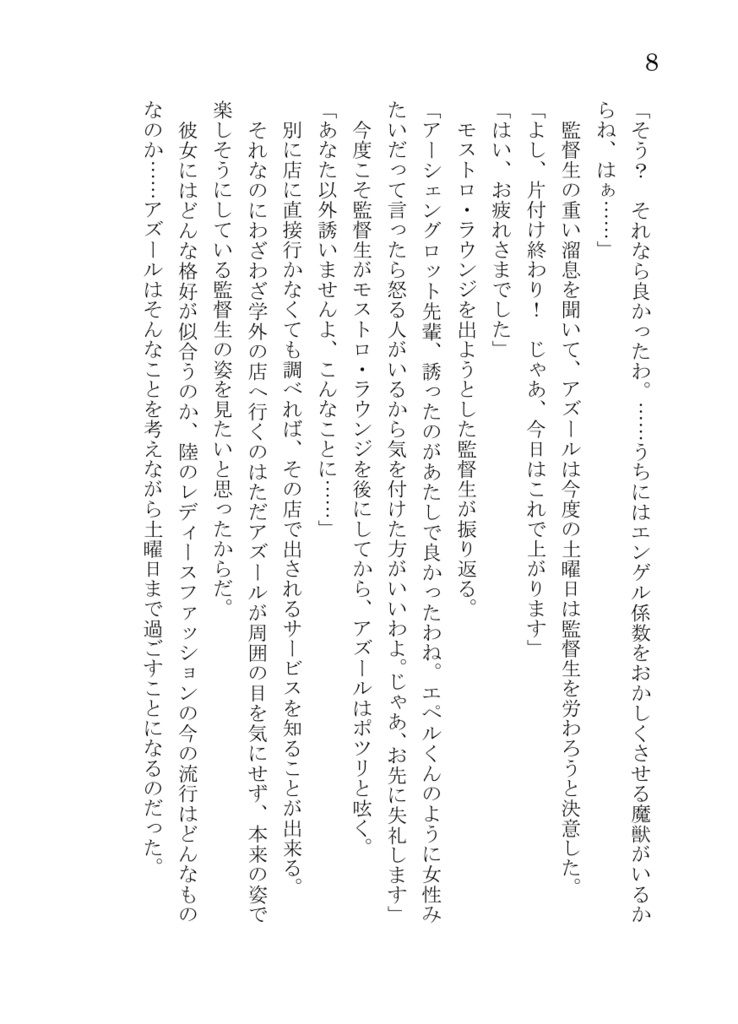 8
「そう？　それなら良かったわ。……うちにはエンゲル係数をおかしくさせる魔獣がいるか
らね、はぁ……」
　監督生の重い溜息を聞いて、アズールは今度の土曜日は監督生を労わろうと決意した。
「よし、片付け終わり！　じゃあ、今日はこれで上がります」
「はい、お疲れさまでした」
　モストロ・ラウンジを出ようとした監督生が振り返る。
「アーシェングロット先輩、誘ったのがあたしで良かったわね。エペルくんのように女性み
たいだって言ったら怒る人がいるから気を付けた方がいいわよ。じゃあ、お先に失礼します」
　今度こそ監督生がモストロ・ラウンジを後にしてから、アズールはポツリと呟く。
「あなた以外誘いませんよ、こんなことに……」
　別に店に直接行かなくても調べれば、その店で出されるサービスを知ることが出来る。
　それなのにわざわざ学外の店へ行くのはただアズールが周囲の目を気にせず、本来の姿で
楽しそうにしている監督生の姿を見たいと思ったからだ。
　彼女にはどんな格好が似合うのか、陸のレディースファッションの今の流行はどんなもの
なのか……アズールはそんなことを考えながら土曜日まで過ごすことになるのだった。